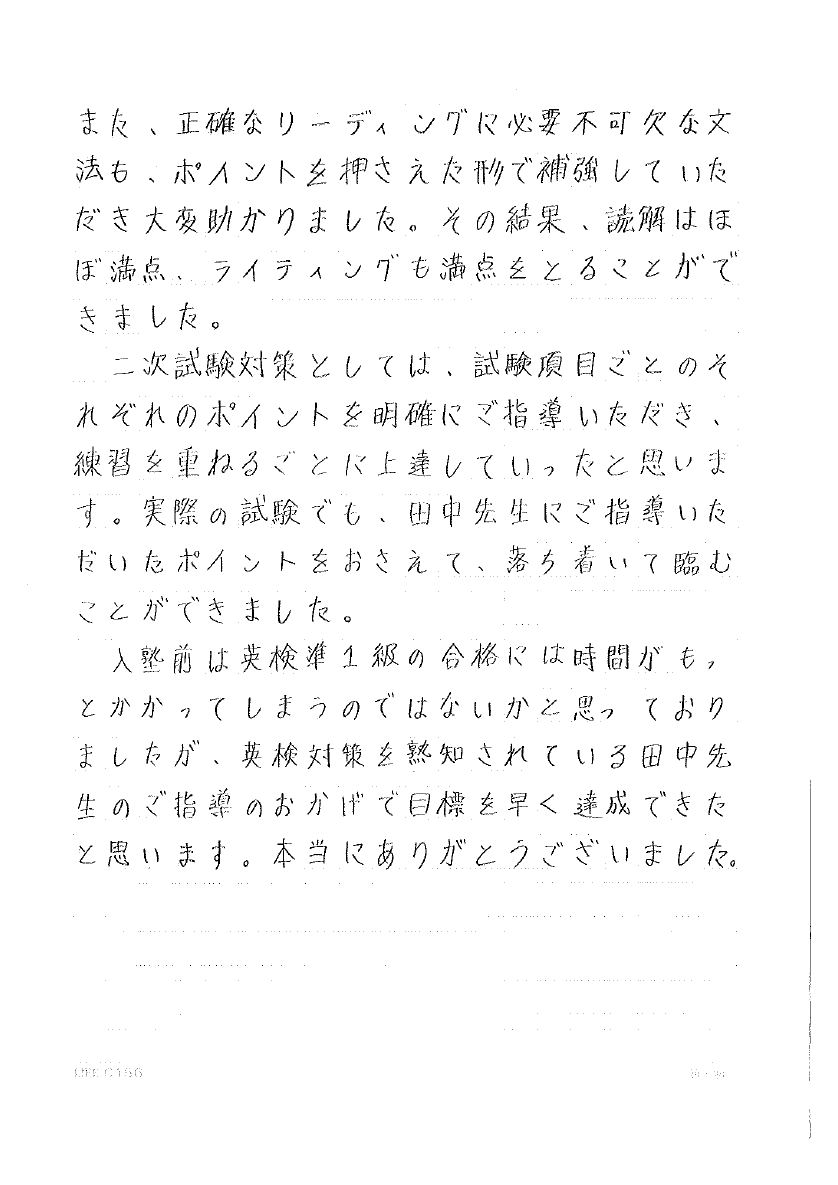 また、正確なリーディングに必要不可欠な文
法も、ポイントを押さえた形で補強していた
だき大変助かりました。その結果、読解はほ
ぼ満点、ライティングも満点をとることがで
きました。
二次試験対策としては、試験項目ごとのそ
れぞれのポイントを明確にご指導いただき、
練習を重ねるごとに上達していったと思いま
す。実際の試験でも、田中先生にご指導いた
だいたポイントをおさえて、落ち着いて臨む
ことができました。
入塾前は英検準1級の合格には時間がもっ
とかかってしまうのではないかと思っており
ましたが、英検対策を熟知されている田中先
生のご指導のおかげで目標を早く達成できた
と思います。本当にありがとうございました。